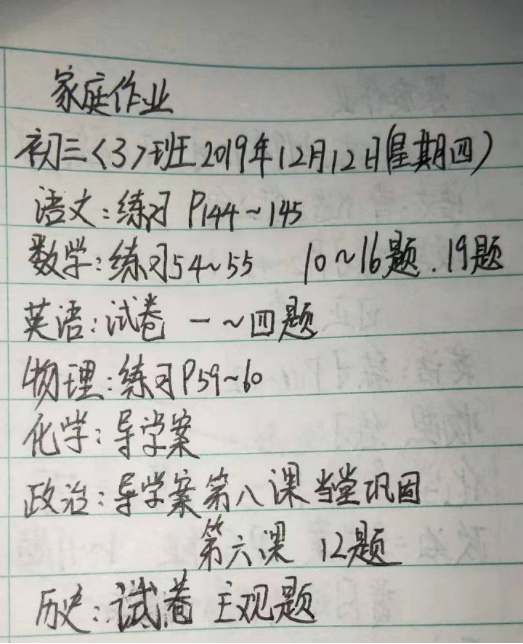 家庭作业
初三<3>班 2019年12月12日(星期四)
语文:练习 P144~145
数学:练习54~55 10~16题.19题
英语:试卷 一~四题
物理:练习P59~60
化学:导学案
政治:导学案第八课当堂巩固
第六课 12题
历史:试卷 主观题